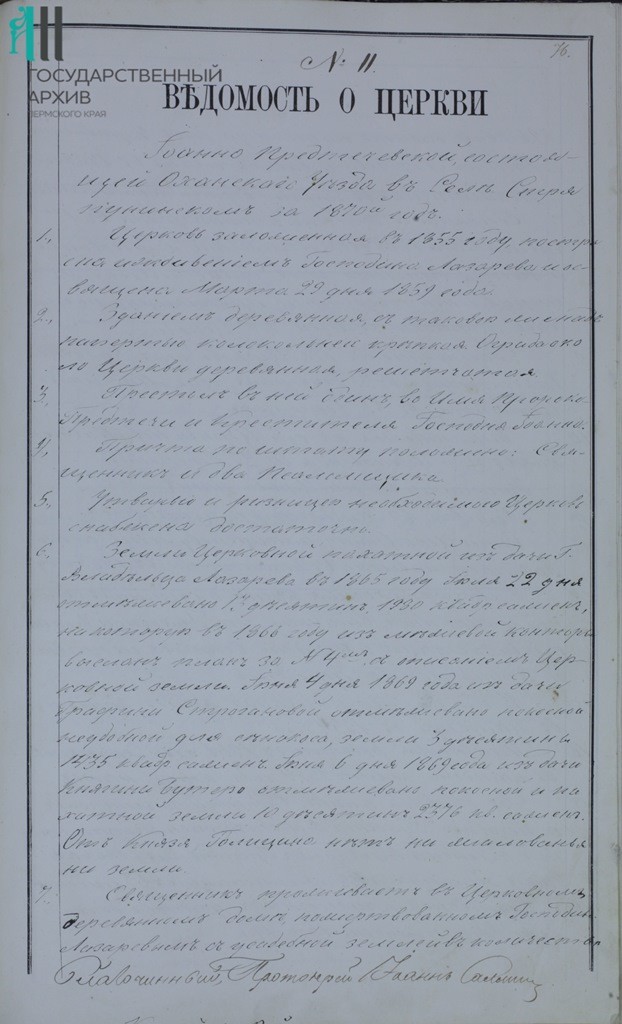 ГОСУДАРСТВЕННЫЙ
АРХИВ
ПЕРМСКОГО КРАЯ
76.
№ 11
ВѢДОМОСТЬ О ЦЕРКВИ
Іоанно Предтечевской, состоя-
щей Оханскаго Уѣзда въ Селѣ
за 1870й годъ.
1., Церковь заложенная въ 1855 году, постро
ена иждивеніемъ Господина Лазарева и ос-
вящена Марта 29 дня 1859 года.
2., Зданіемъ деревянная, съ таковою же
папертью колокольнею крѣпкая Ограда око
ло Церкви деревянная, решетчатая.
3, Престолъ въ ней одинъ, во Имя Пророка
Предтечи и Крестителя Господня Іоанна.
4, Причта по штату положено: Свя-
щенникъ и два Псаломщика.
5., Утварью и ризницею необходимою Церковь
снабжена достаточно.
6., Земли Церковной пахатной изъ дачи Г.
Владѣльца Лазарева въ 1865 году Іюля 22 дня
отмежевано десятинъ 1930 квадр. сажень,
на которую въ 1866 году изъ межевой конторы
высланъ планъ за № 4мъ съ описаніемъ Цер-
ковной земли. Іюня 4 дня 1869 года изъ дачи
Графини Строгановой отмежевано покосной
неудобной для сѣнокоса, земли 3 десятины
1435 квадр сажен. Іюня 6 дня 1869 года изъ дачи
Княгини Бутеро отмежевано покосной и па
хатной земли 10 десятинъ 2376 кв. сажен.
Отъ Князя Голицына нѣтъ ни жалованья
ни земли.
7., Священникъ проживаетъ въ Церковномъ
деревянномъ домѣ, пожертвованномъ Господин.
Лазаревымъ съ усадебной землей въ количествѣ
Благочинный, Протоіерей Іоаннъ